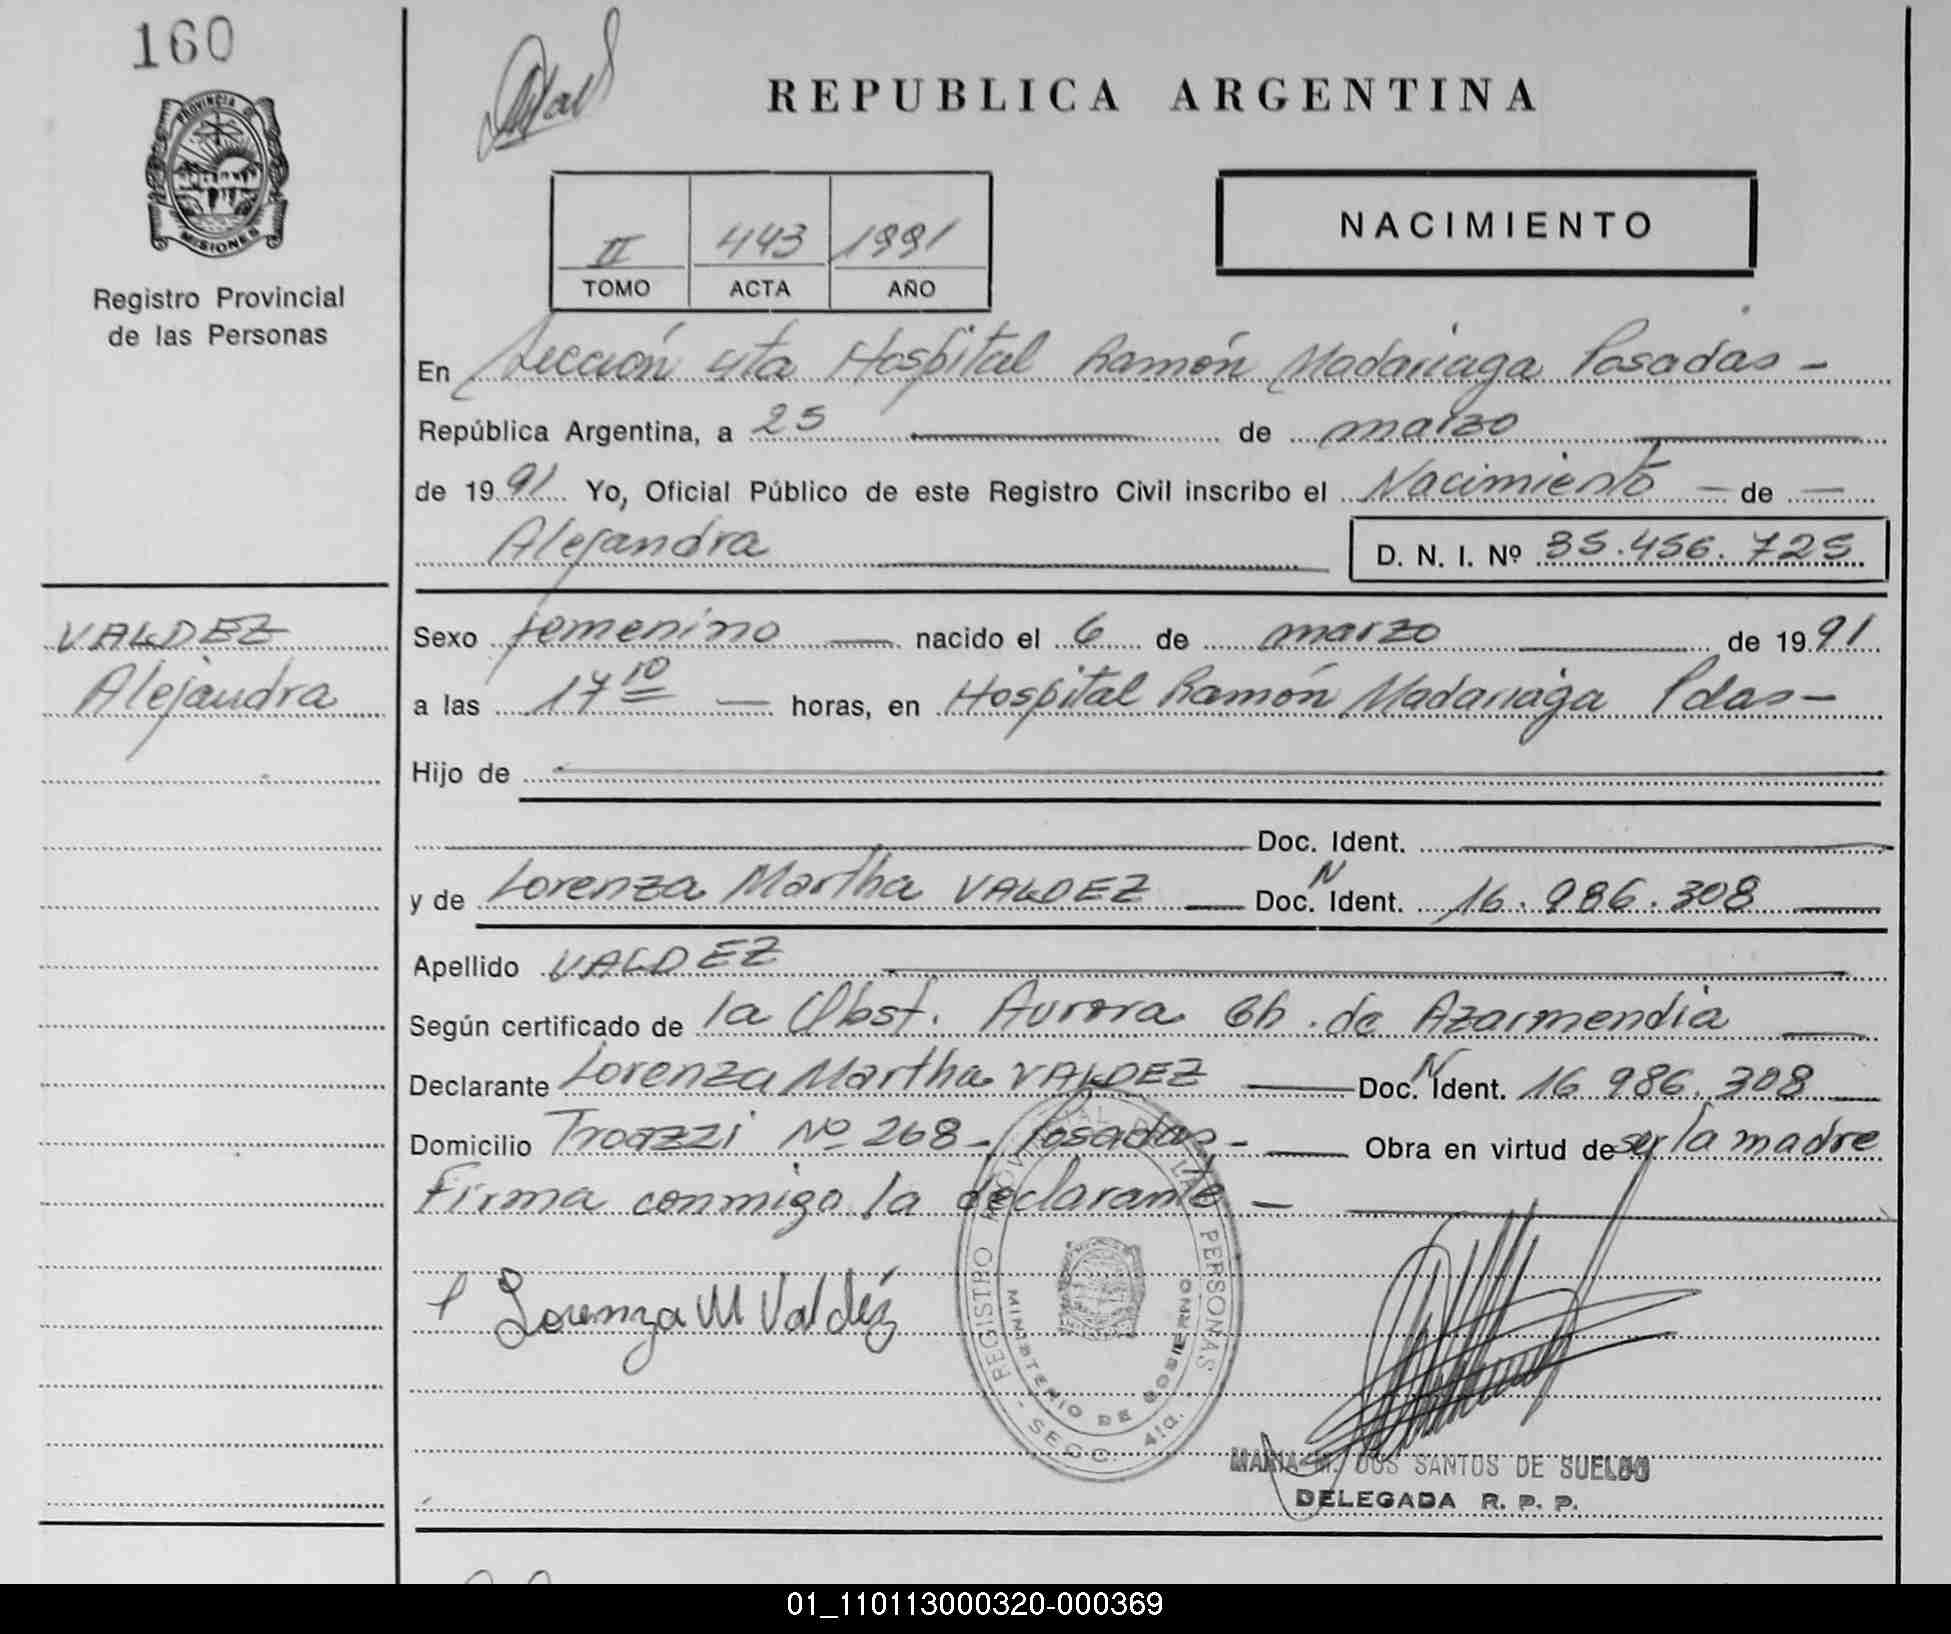 160
REPUBLICA ARGENTINA
PROVINCIA DE
MISIONES
Registro Provincial
de las Personas
II 443 1991
TOMO ACTA AÑO
NACIMIENTO
En Sección 4ta Hospital Ramón Madariaga Posadas -
República Argentina, a 25 de marzo
de 1991 Yo, Oficial Público de este Registro Civil inscribo el Nacimiento - de -
Alejandra D. N. I. Nº 35.456.725
VALDEZ
Alejandra
Sexo femenino nacido el 6 de marzo de 1991
a las 17 10 horas, en Hospital Ramón Madariaga Pdas-
Hijo de
Doc. Ident.
y de Lorenza Martha VALDEZ Doc. N Ident. 16.986.308
Apellido VALDEZ
Según certificado de la Obst. Aurora Gh. de Azarmendia
Declarante Lorenza Martha VALDEZ Doc. N Ident. 16 986.308
Domicilio Troazzi Nº 268 - Posadas - Obra en virtud de ser la madre
Firma conmigo la declarante -
Lorenza M Valdéz
REGISTRO PROVINCIAL DE LAS PERSONAS
MINISTERIO DE GOBIERNO
- SECC. 4ta. -
MARIA M. DOS SANTOS DE SUELDO
DELEGADA R. P. P.
01_110113000320-000369